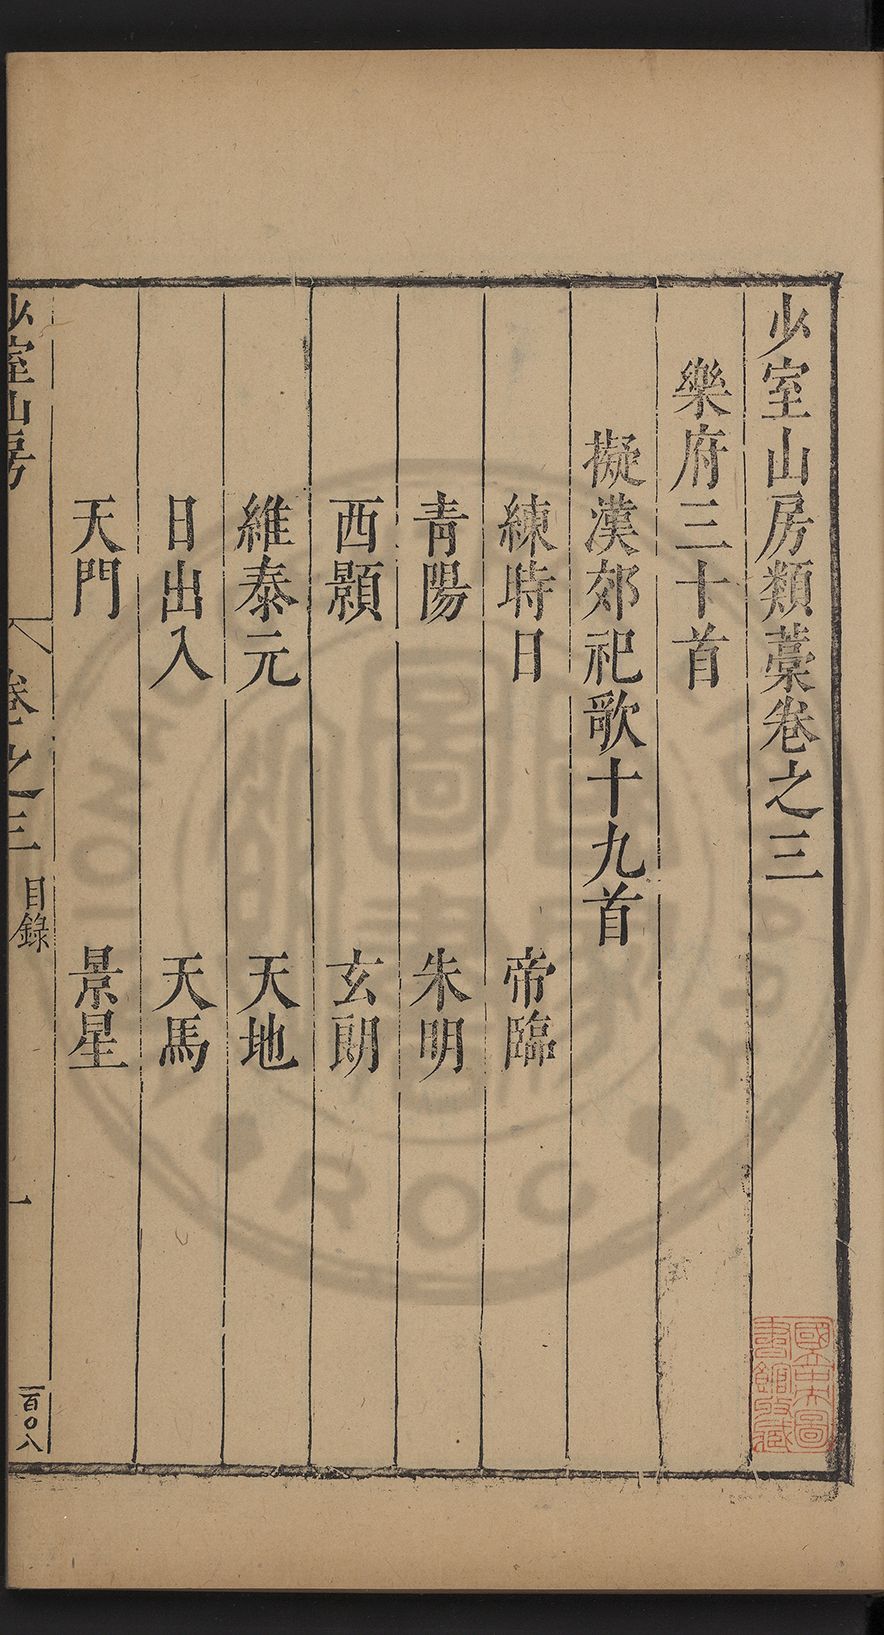 少室山房類藁卷之三
樂府三十首
擬漢郊祀歌十九首
練時日　帝臨
青陽　朱明
西顥　玄朗
維泰元　天地
日出入　天馬
天門　景星
少室山房　卷之三　目録　一
一百〇八
國立中央圖
書館收藏